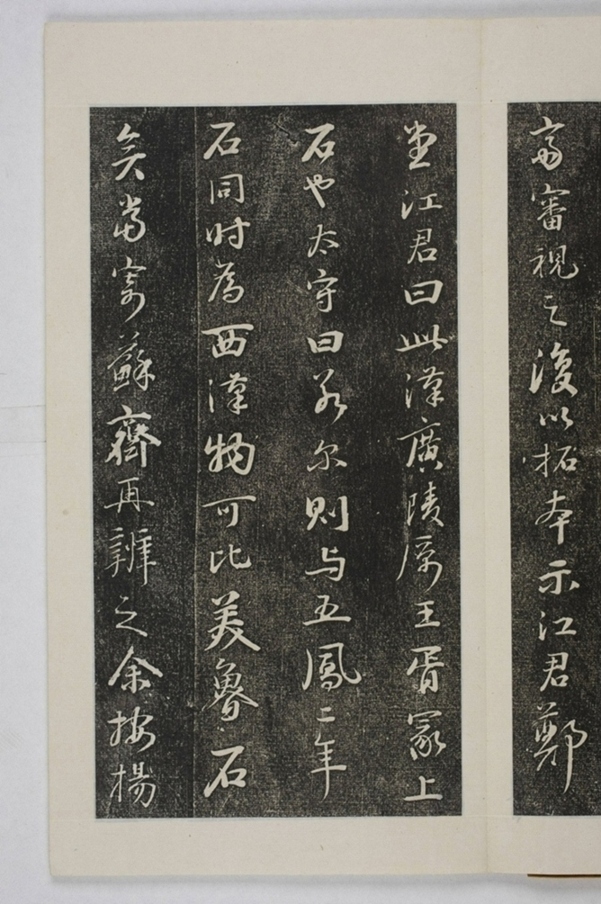 齋審視之復以拓本示江君鄭
堂江君曰此漢廣陵厲王胥冢上
石也太守曰若尔則与五鳳二年
石同时為西漢物可比美魯石
矣當寄蘇齋再辨之余按揚